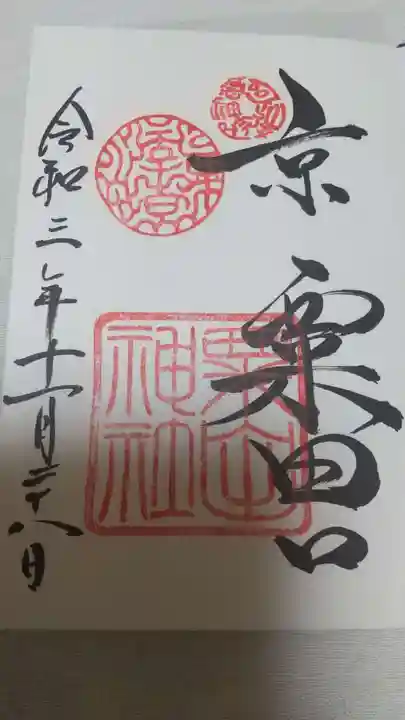 京 粟田口
粟田神社
令和三年十一月二十八日